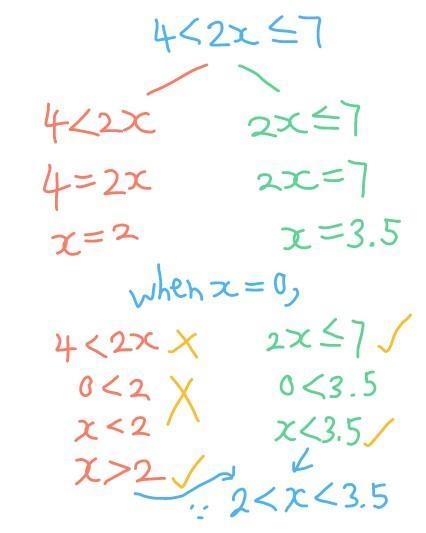 4<2x≤7
4<2x
4=2x
x=2
2x≤7
2x=7
x=3.5
when x=0,
4<2x ✗
0<2 ✗
x<2
x>2 ✓
2x≤7 ✓
0<3.5
x<3.5 ✓
∵ 2<x<3.5